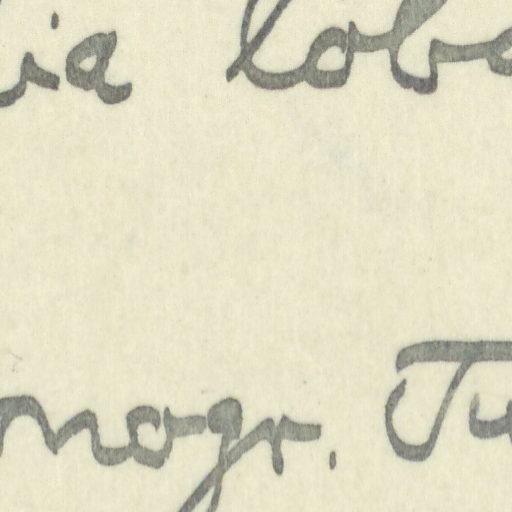 ia lobe
nogr. Tu